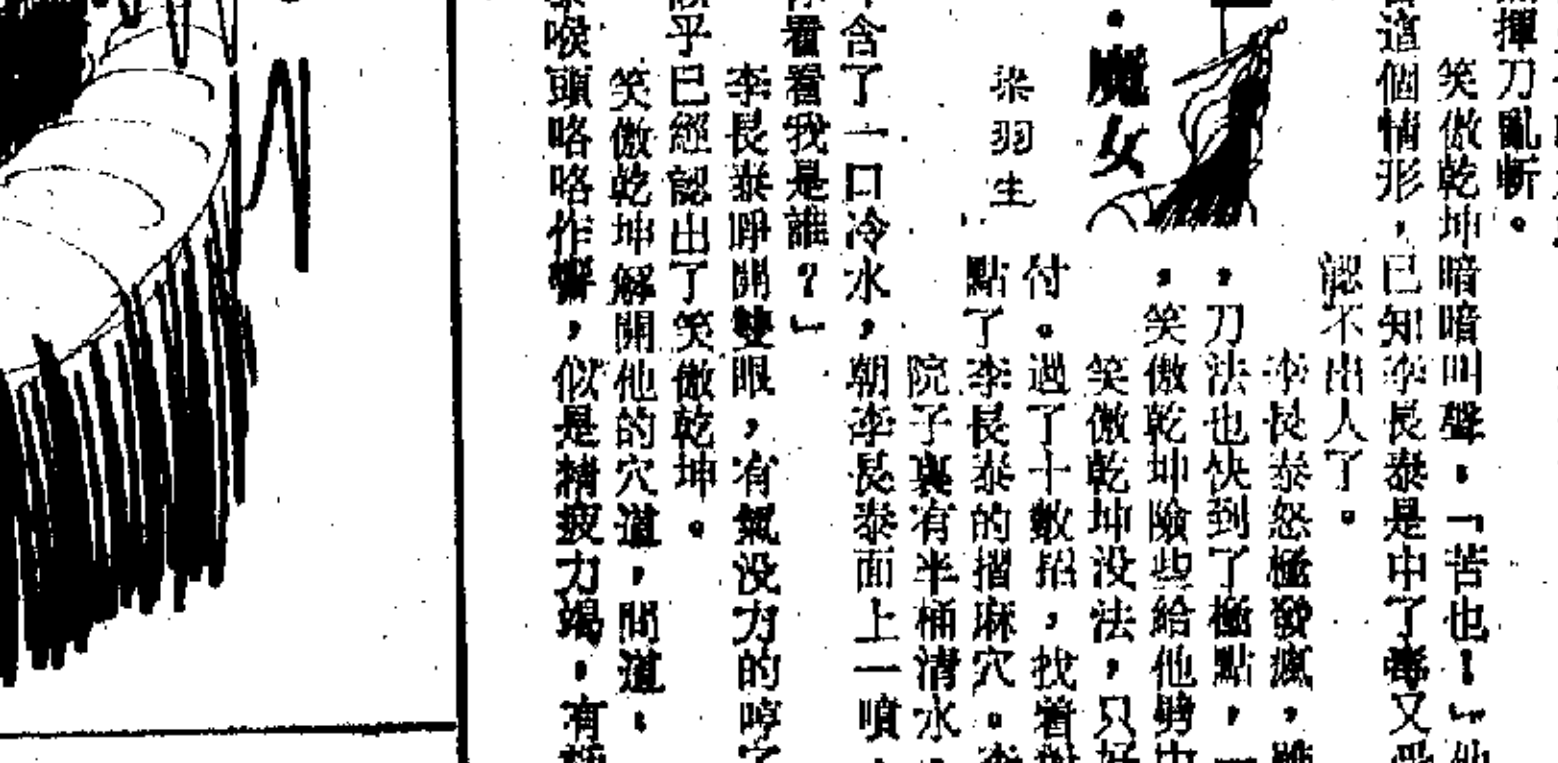 揮刀亂斬。
笑傲乾坤暗暗叫聲，「苦也！」他
這個情形，已知李長泰是中了毒又受
認不出人了。
李長泰怒極發瘋，雖
，刀法也快到了極點，一
，笑傲乾坤險些給他劈中
笑傲乾坤没法，只好
付。過了十數招，找着對
點了李長泰的摺麻穴。李
院子裏有半桶清水，
．魔女
梁羽生
含了一口冷水，朝李長泰面上一噴，
看看我是誰？」
李長泰睜開雙眼，有氣没力的哼了
乎已經認出了笑傲乾坤。
笑傲乾坤解開他的穴道，問道：
喉頭咯咯作響，似是精疲力竭，有